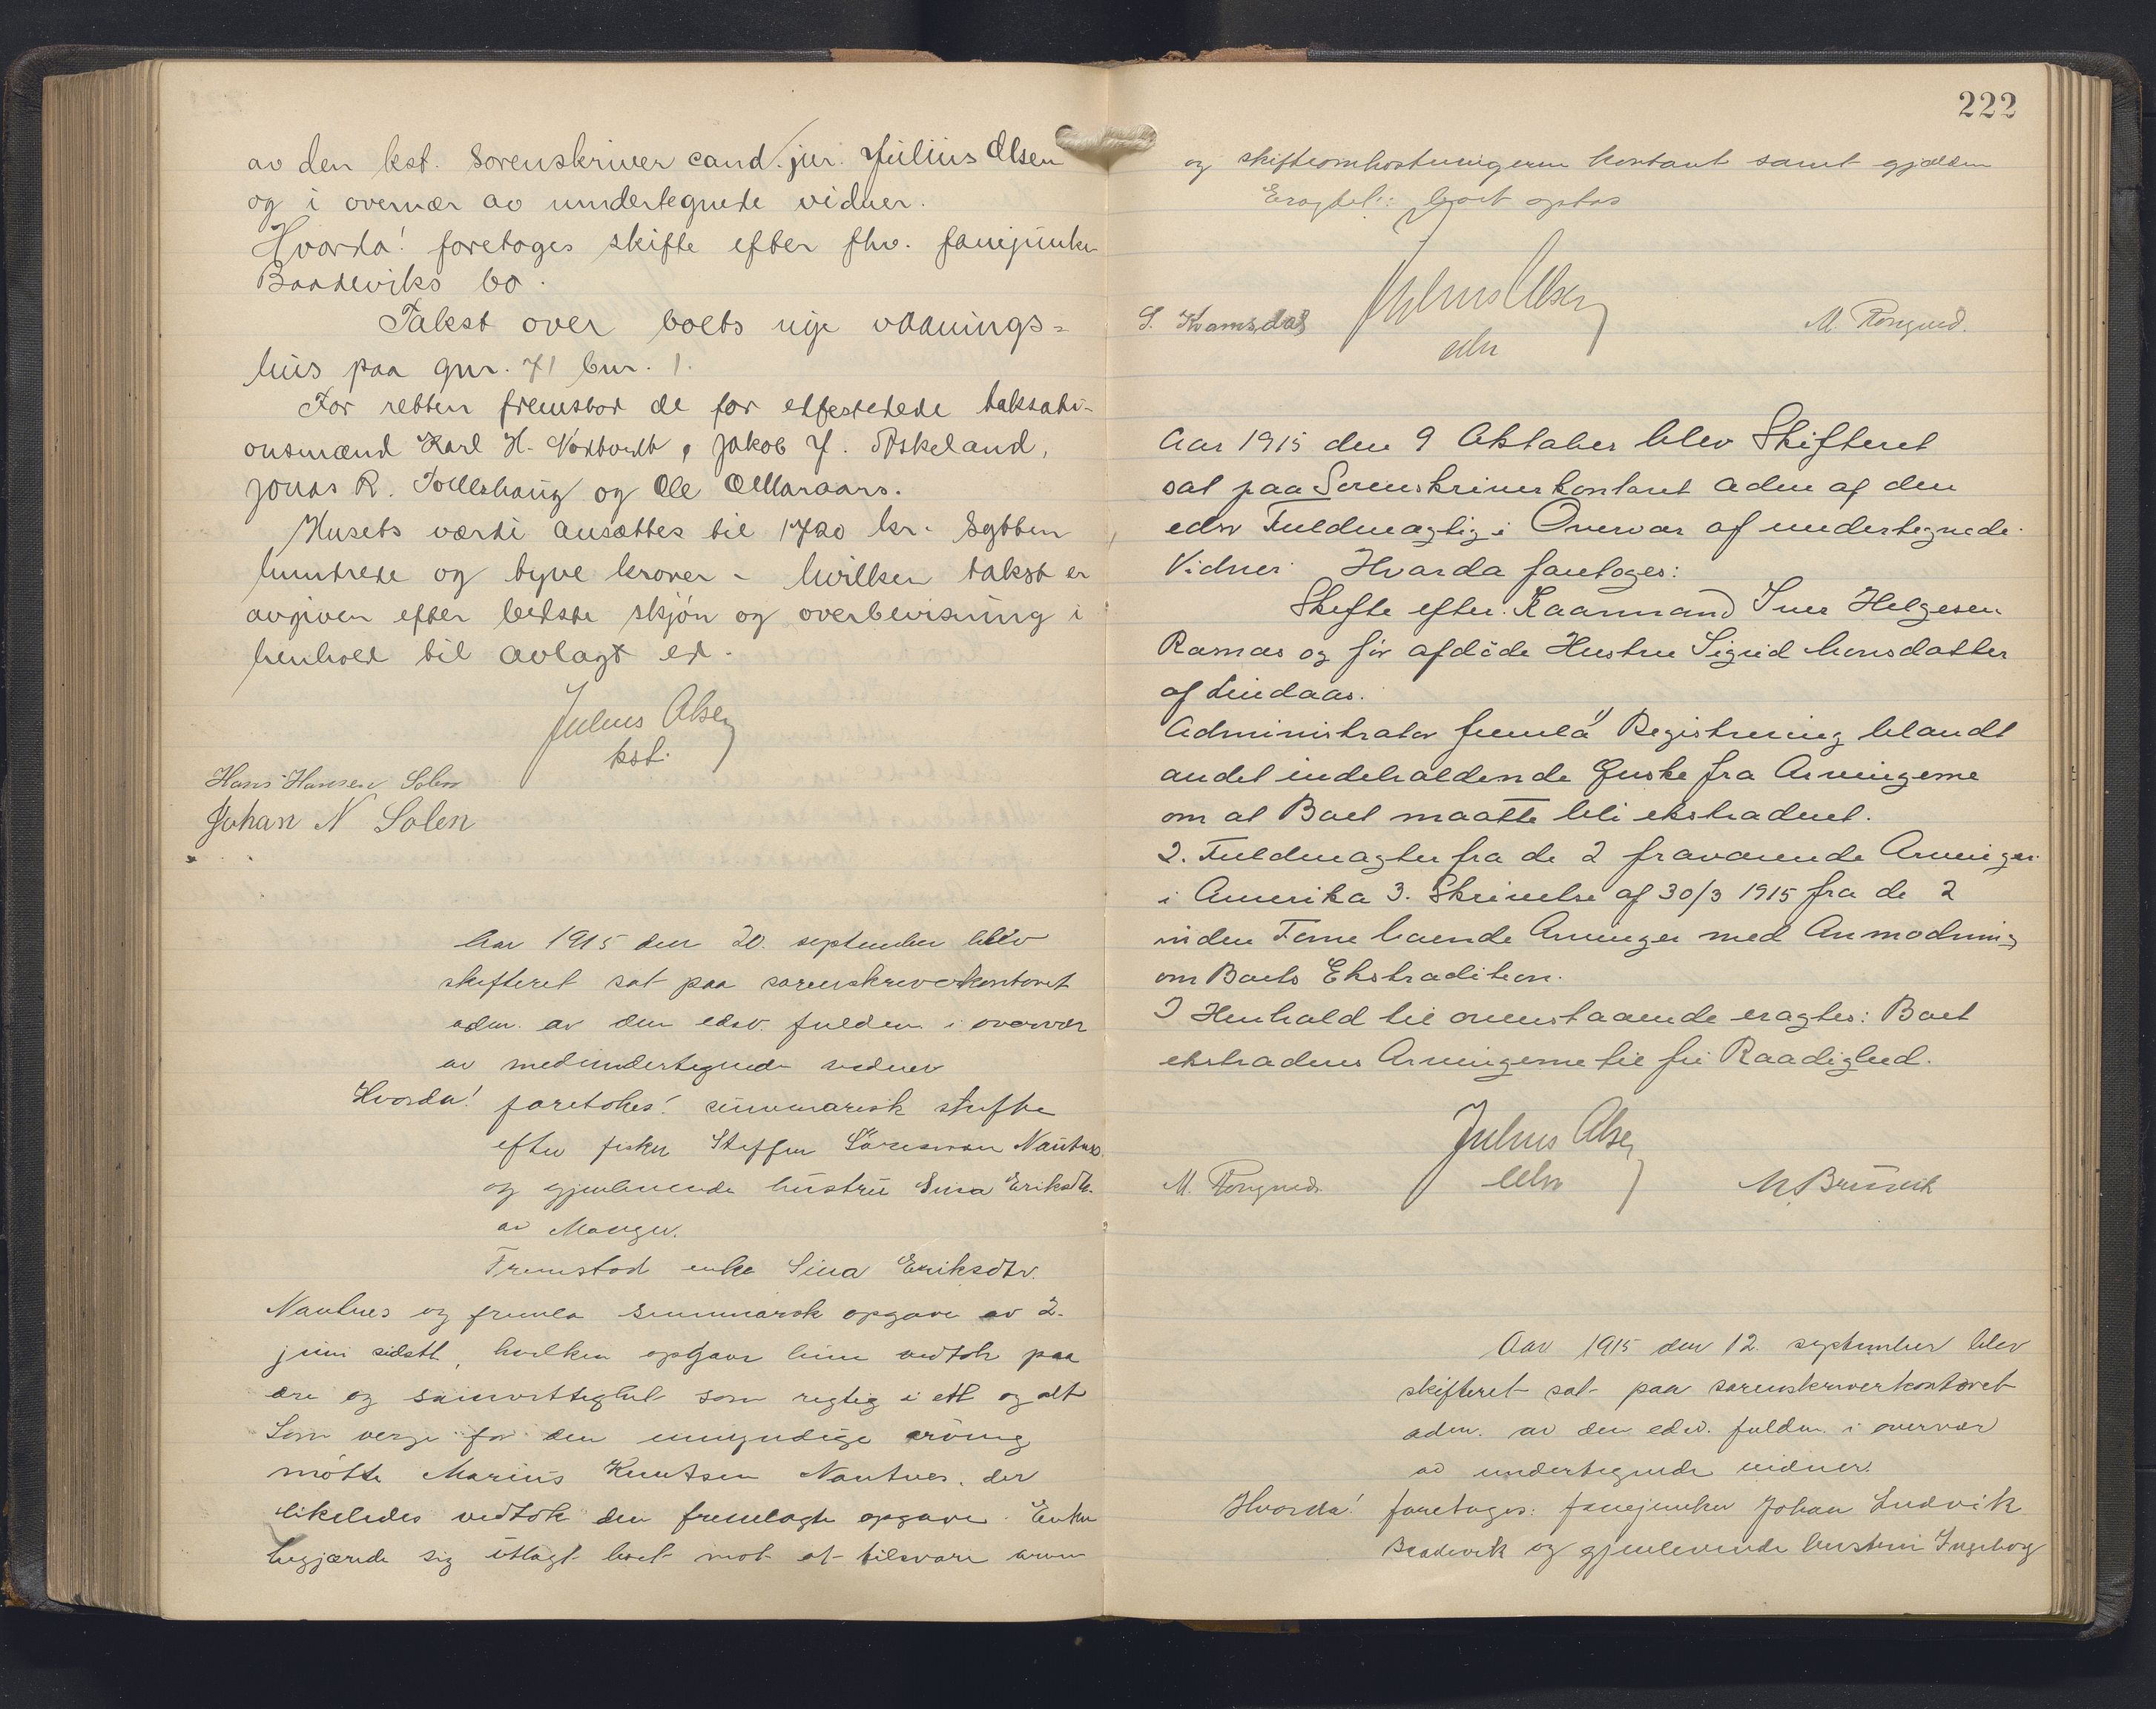 av den kst. sorenskriver cand. jur. Julius Olsen
og i overvær av undertegnede vidner.
Hvorda! foretoges skifte efter fhv. fanejunker
Baadeviks bo.
Takst over boets nye vaanings-
hus paa gnr. 71 bnr. 1.
For retten fremstod de før edfestede taksati-
onsmænd Karl H. Nordtvedt, Jakob J. Askeland,
Jonas R. og Ole
Husets værdi ansættes til 1720 kr. sytten
hundrede og tyve kroner - hvilken takst er
avgiven efter bedste skjön og overbevisning i
henhold til avlagt ed.
Julius Olsen
kst.
Hans Hansen Solen
Johan N Solen
Aar 1915 den 20. september blev
skifteret sat paa sorenskriverkontoret
adm. av den edsv. fuldm. i overvær
av medundertegnede vidner
Hvorda! foretokes! summarisk skifte
efter fisker Steffen Sörensen Nautnes
og gjenlevende hustru Sina Eriksdtr.
av Manger.
Fremstod enke Sina Eriksdtr.
Nautnes og fremla summarisk opgave av 2.
juni sidstl, hvilken opgave hun vedtok paa
ære og samvittighet som rigtig i ett og alt
Som verge for den umyndige arving
mötte Marius Knutsen Nautnes, der
likeledes vedtok den fremlagte opgave. Enken
begjærede sig utlagt boet mot at tilsvare arven
222
og skifteomkostningerne kontant samt gjælden
Eragtet: boet optas
Julius Olsen
edsv
S. Kvamsdal
M. Rongved.
Aar 1915 den 9 Oktober blev Skifteret
sat paa Sorenskriverkontoret adm af den
edsv Fuldmægtig i Overvær af undertegnede
Vidner. Hvorda foretoges:
Skifte efter Kaarmand Iver Helgesen
Ramas og før afdöde Hustru Sigrid Monsdatter
af Lindaas.
Administrator fremlà Registrering blandt
andet indeholdende Ønske fra Arvingerne
om at Boet maatte bli ekstraderet.
2. Fuldmagter fra de 2 fraværende Arvinger
i Amerika 3. Skrivelse af 30/3 1915 fra de 2
inden boende Arvinger med Anmodning
om Boets Ekstradition.
I Henhold til ovenstaaende eragtes: Boet
ekstraderes Arvingerne til fri Raadighed.
Julius Olsen
edsv
M. Rongved.
M. Brunvik
Aar 1915 den 12. september blev
skifteret sat paa sorenskriverkontoret
adm. av den edsv. fuldm. i overvær
av undertegnede vidner.
Hvorda! foretoges: fanejunker Johan Ludvik
Baadevik og gjenlevende hustru Ingeborg